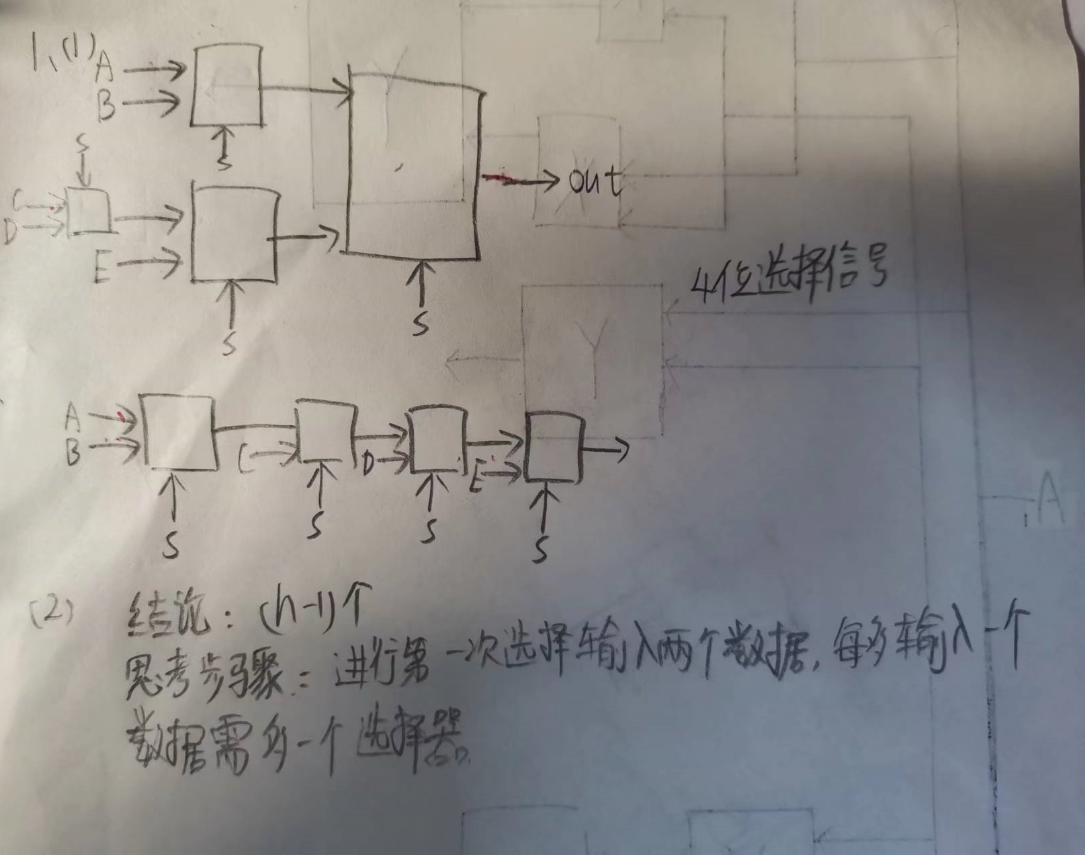 1、(1) A
B
S
S
C
D
E
out
S
S
4位选择信号
A
B
C
D
E
S
S
S
S
A
(2) 结论：(n-1)个
思考步骤：进行第一次选择输入两个数据，每多输入一个
数据需多一个选择器。